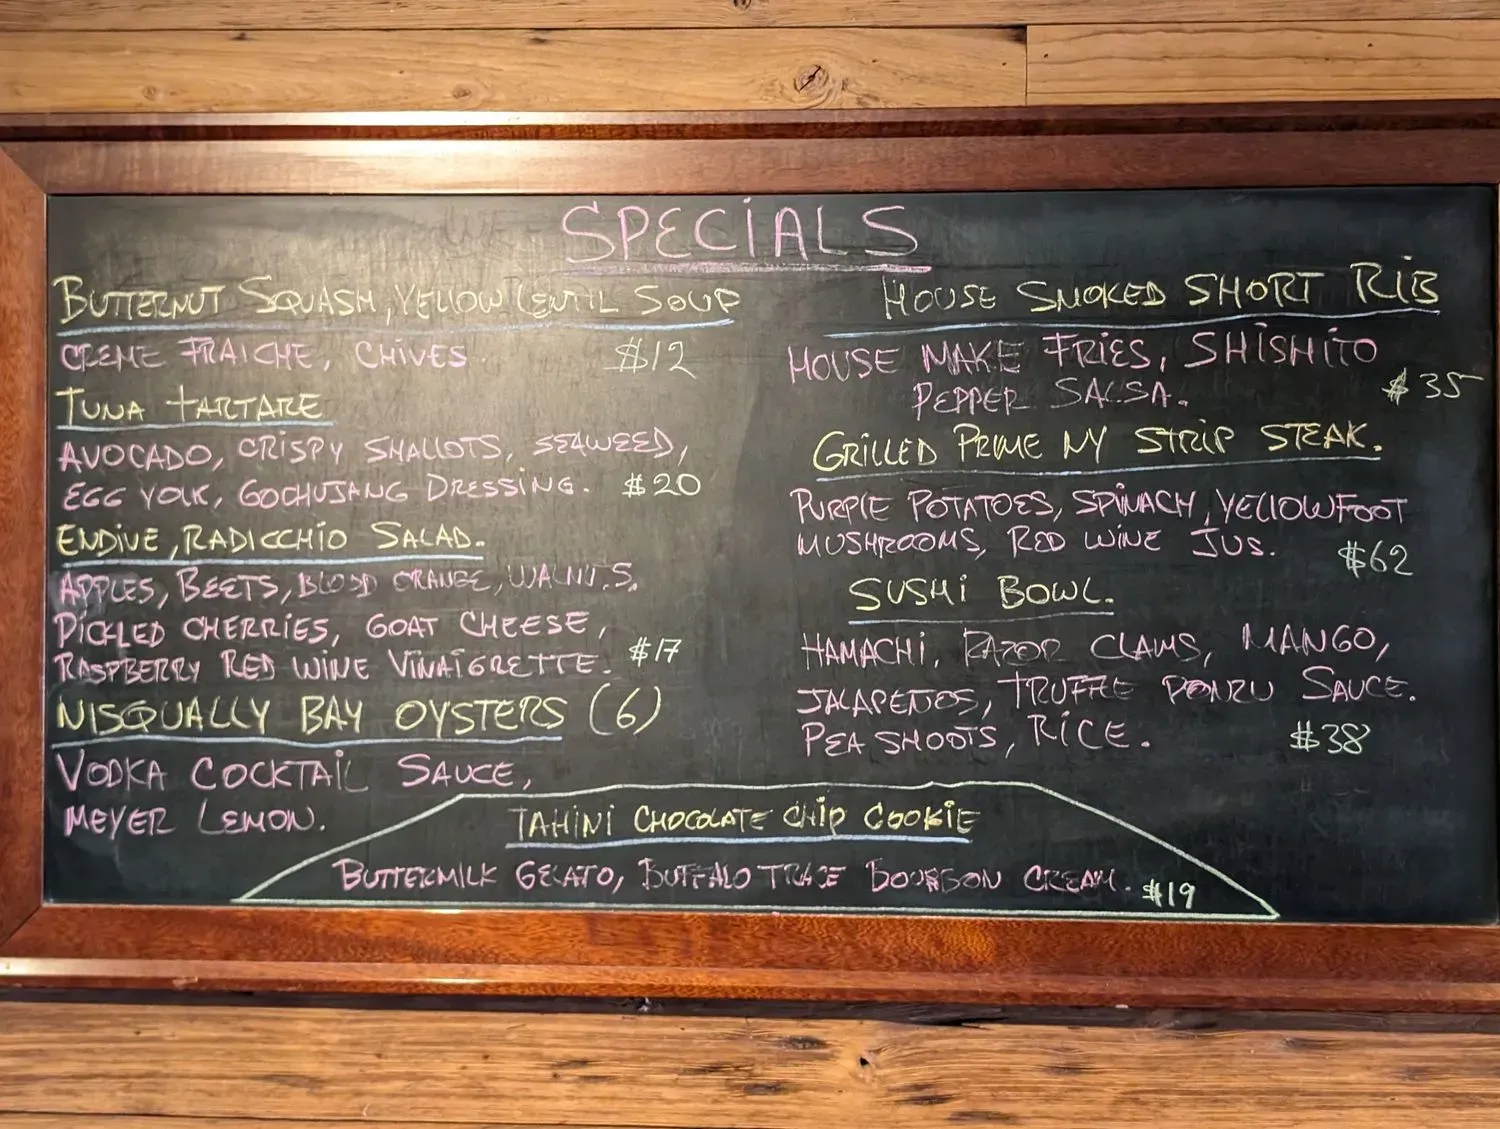 SPECiALS
BUTTERNUT SQUASH, YELLOW LENTIL SOUP
CREME FRAICHE, CHIVES $12
TUNA TARTARE
AVOCADO, CRiSPY SHALLOTS, SEAWEED,
EGG YOLK, GOCHUJANG DRESSiNG. $20
ENDIVE, RADICCHiO SALAD.
APPLES, BEETS, BLOOD ORANGE, WALNUTS,
PiCKLED CHERRiES, GOAT CHEESE,
RASPBERRY RED WINE ViNAiGRETTE. $17
NISQUALLY BAY OYSTERS (6)
VODKA COCKTAiL SAUCE,
MEYER LEMON.
HOUSE SMOKED SHORT RiB
HOUSE MAKE FRiES, SHiSHiTO
PEPPER SALSA. $35
GRiLLED PRiME NY STRiP STEAK.
PURPLE POTATOES, SPiNACH, YELLOWFOOT
MUSHROOMS, RED WiNE JUS. $62
SUSHi BOWL.
HAMACHi, RAZOR CLAMS, MANGO,
JALAPEÑOS, TRUFFLE PONZU SAUCE.
PEA SHOOTS, RiCE. $38
TAHiNi CHOCOLATE CHiP COOKiE
BUTTERMILK GELATO, BUFFALO TRACE BOURBON CREAM. $19